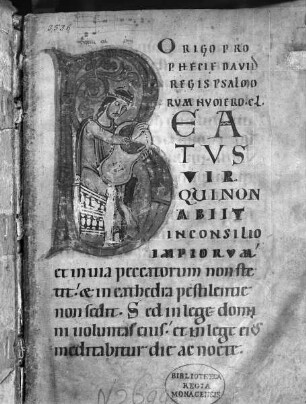 ORIGO PRO
PHECIE DAVID
REGIS PSALMO
RVM NVMERO. CL.
BEA
TVS
VIR
QUI NON
ABIIT
IN CONSILIO
IMPIORVM
et in uia peccatorum non ste
tit. & in cathedra pestilentie
non sedit. Sed in lege domi
ni uoluntas eius. et in lege eiꝰ
meditabitur die ac nocte.
BIBLIOTHECA
REGIA
MONACENSIS.